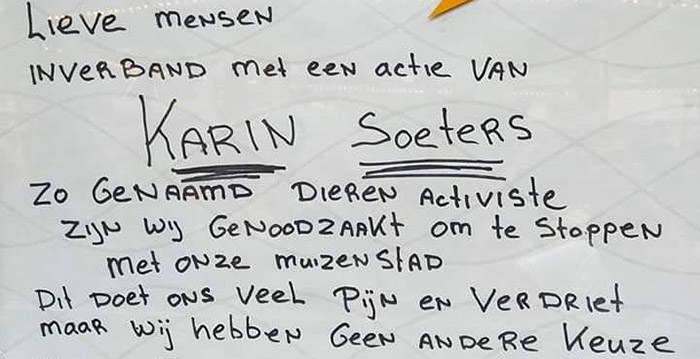 Lieve mensen
INVERBAND met een actie VAN
KARIN Soeters
Zo GENAAMD DIEREN Activiste
ZIJN wij GENOODZAAKt om te Stoppen
met ONZE muizenstad
Dit Doet ONS Veel Pijn en VerDRIet
maar wij hebben GEEN ANDERE Keuze